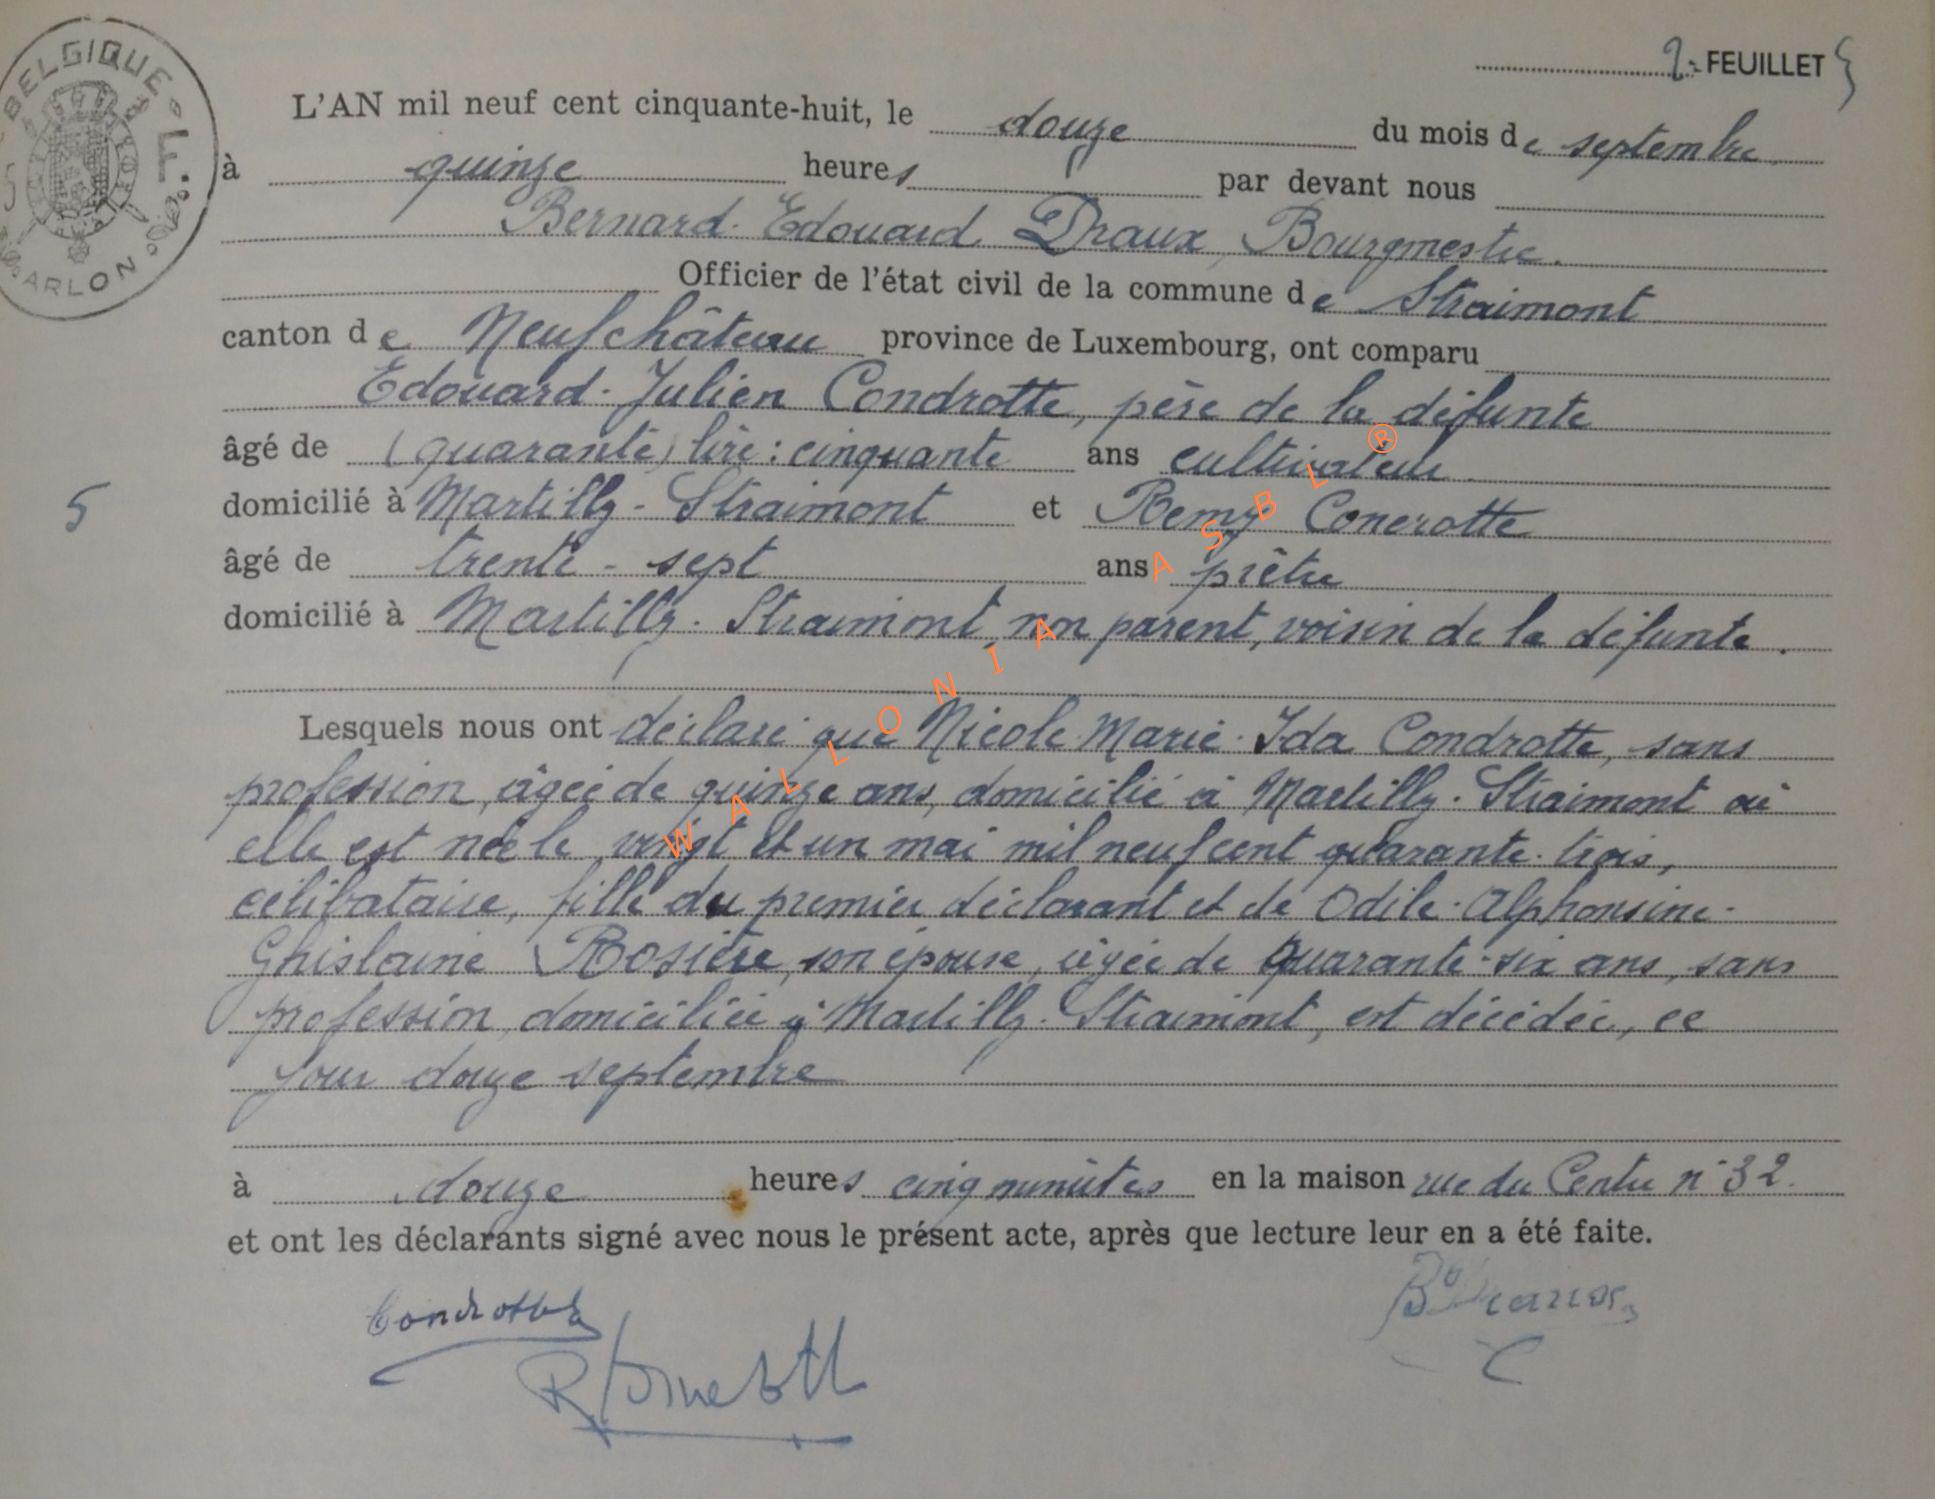 BELGIQUE
F.
5
ARLON
2- FEUILLET
L'AN mil neuf cent cinquante-huit, le douze du mois de septembre
à quinze heures par devant nous
Bernard-Edouard Draux, Bourgmestre.
Officier de l'état civil de la commune de Straimont
canton de Neufchâteau province de Luxembourg, ont comparu
Edouard-Julien Condrotte, père de la défunte
âgé de (quarante) lire : cinquante ans cultivateur.
5
domicilié à Martilly - Straimont et Remy Conerotte
âgé de trente - sept ans prêtre
domicilié à Martilly - Straimont, non parent, voisin de la défunte.
Lesquels nous ont déclaré que Nicole-Marie-Ida Condrotte, sans
profession, âgée de quinze ans, domicilié à Martilly-Straimont où
elle est née le vingt et un mai mil neuf cent quarante-trois,
célibataire, fille du premier déclarant et de Odile-Alphonsine-
Ghislaine Rosière, son épouse, âgée de quarante-six ans, sans
profession, domiciliée à Martilly-Straimont, est décédée, ce
jour douze septembre
à douze heures cinq minutes en la maison rue du Centre n° 32.
et ont les déclarants signé avec nous le présent acte, après que lecture leur en a été faite.
Condrotte
R Conerotte
WALLONIA ASBL ®